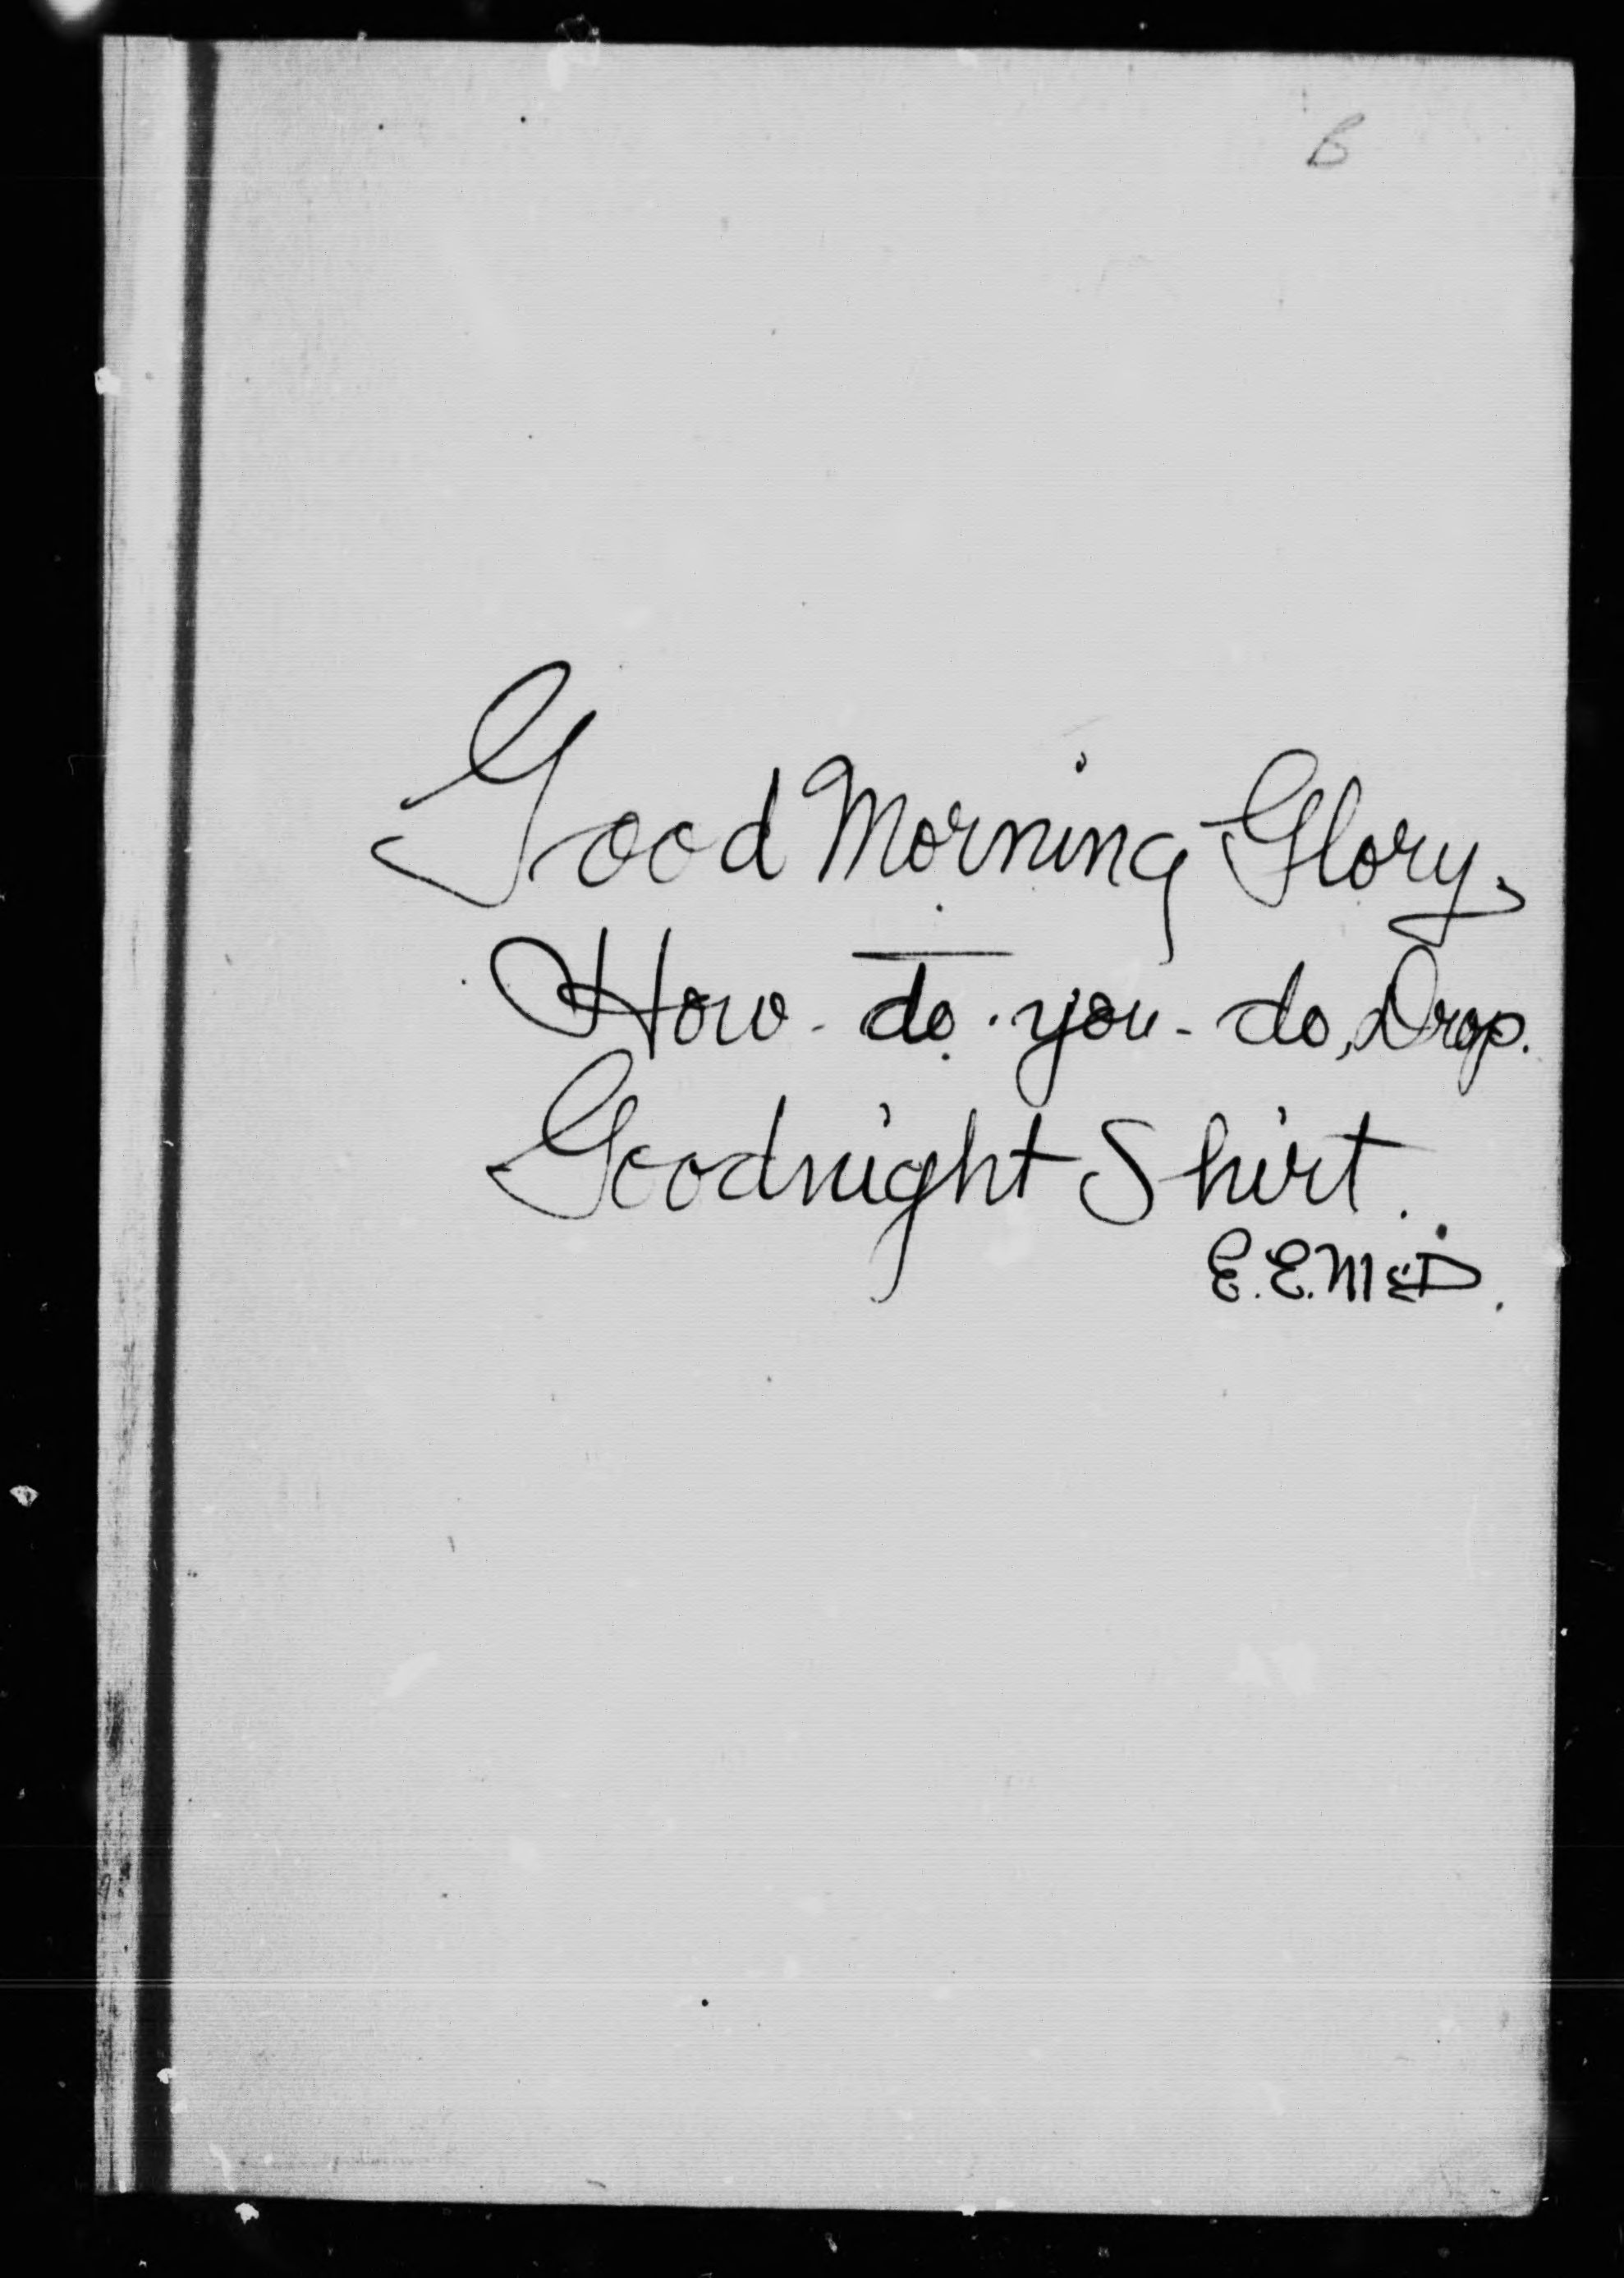 B
Good Morning Glory,
How-do-you-do, Drop.
Goodnight Shirt.
E.E.McD.